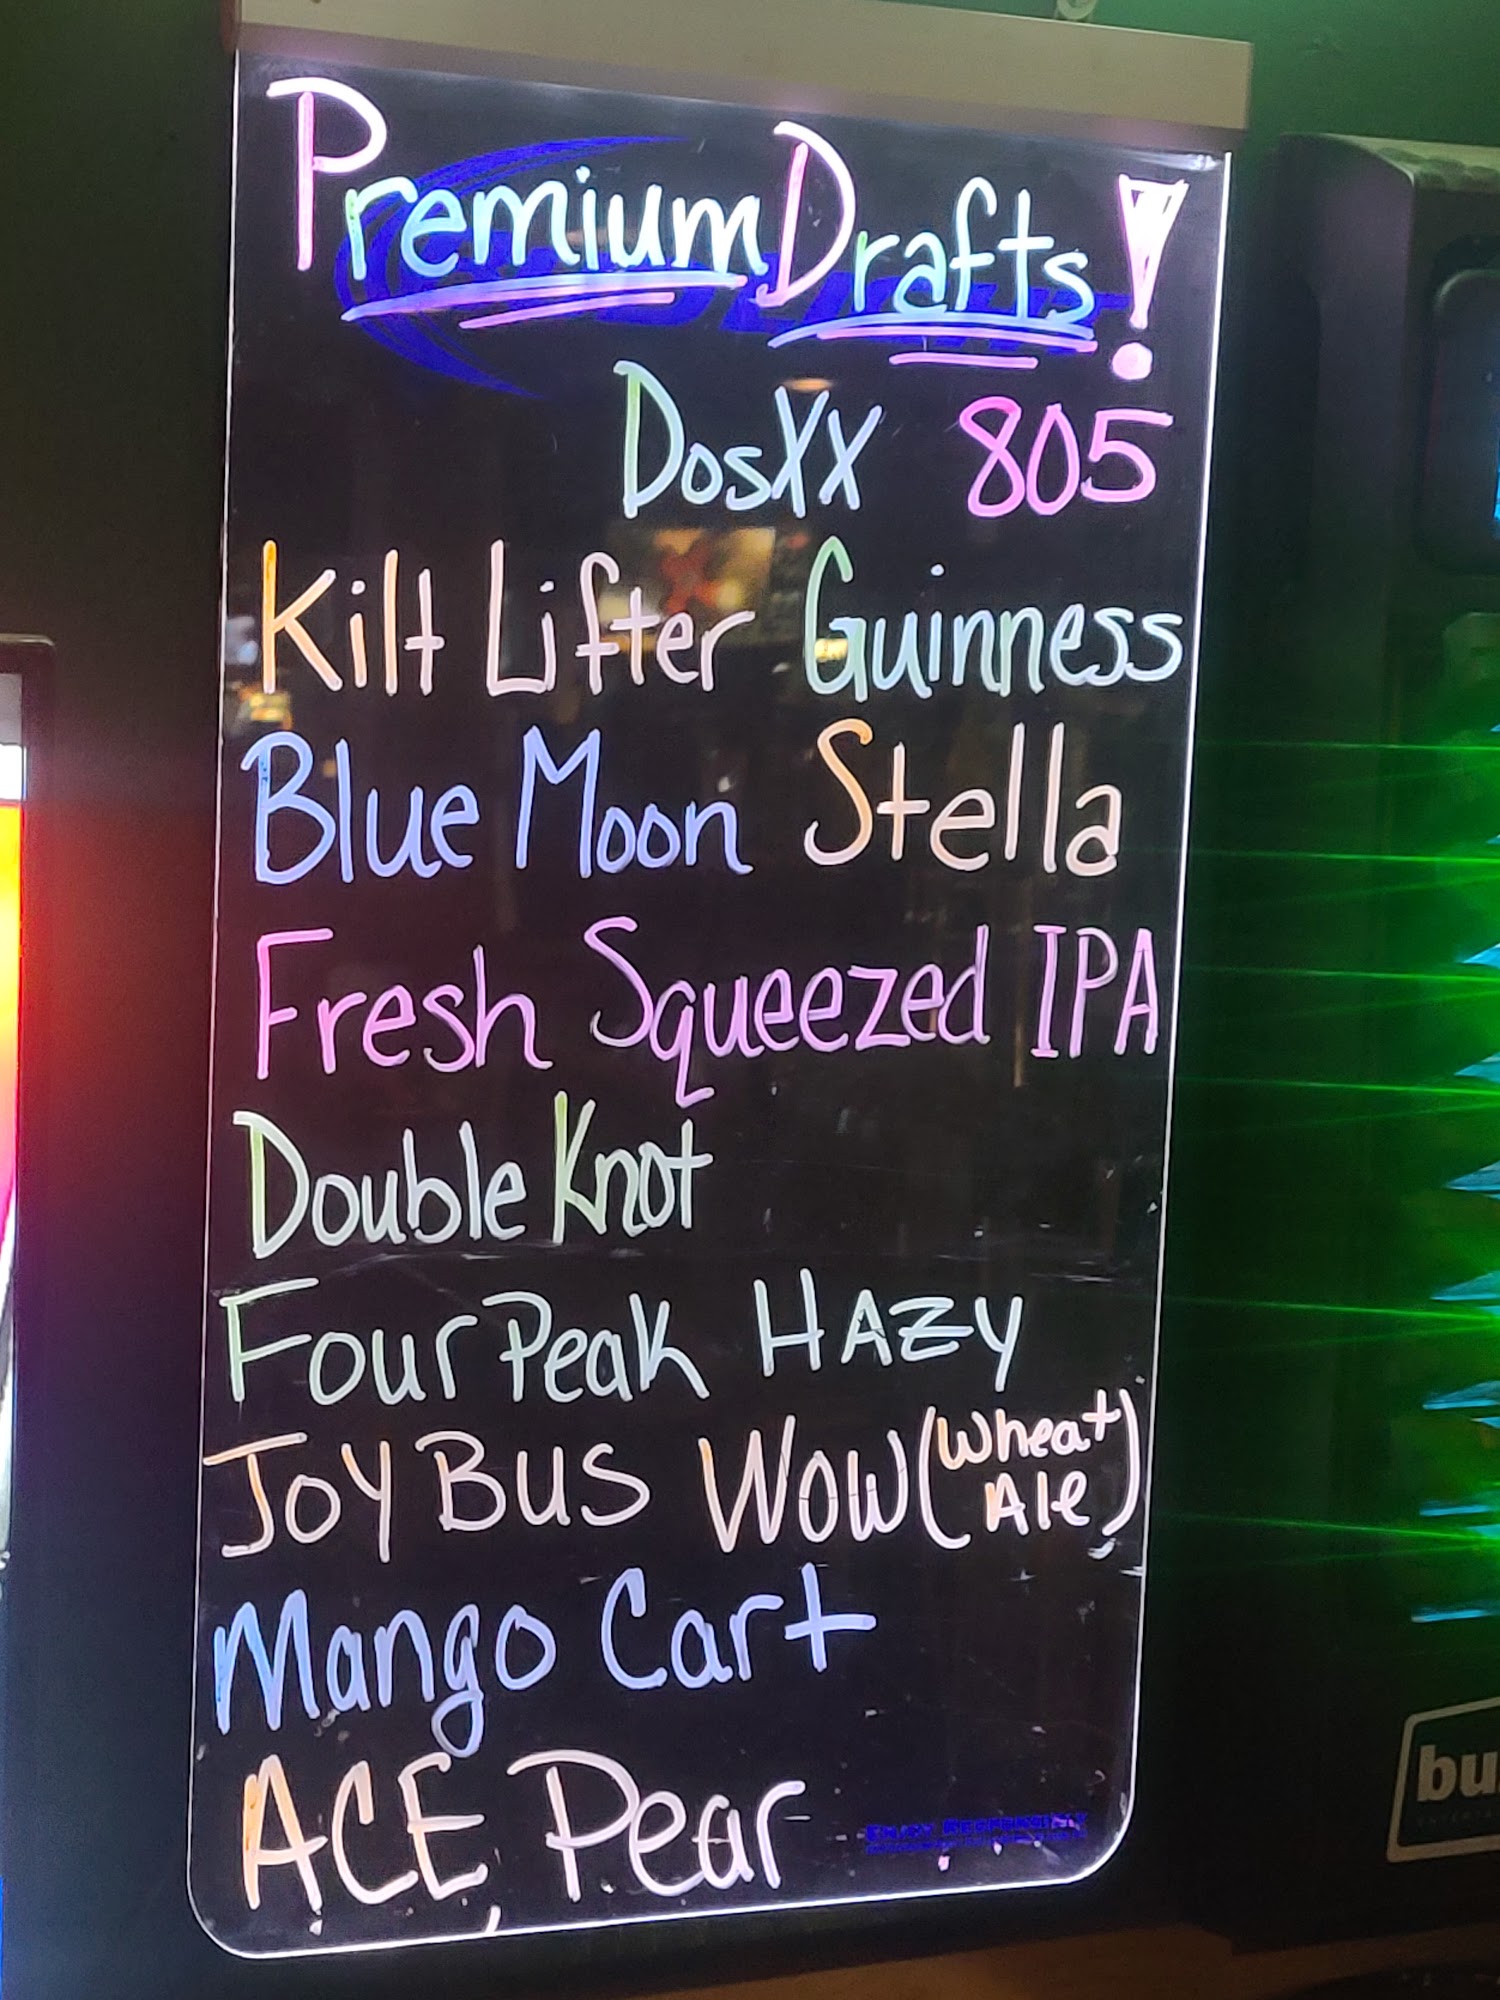 Premium Drafts!
DosXX 805
Kilt Lifter Guinness
Blue Moon Stella
Fresh Squeezed IPA
Double Knot
Four Peak HAZY
JOY BUS WOW (Wheat Ale)
Mango Cart
ACE Pear
ENJOY RESPONSIBLY
bu